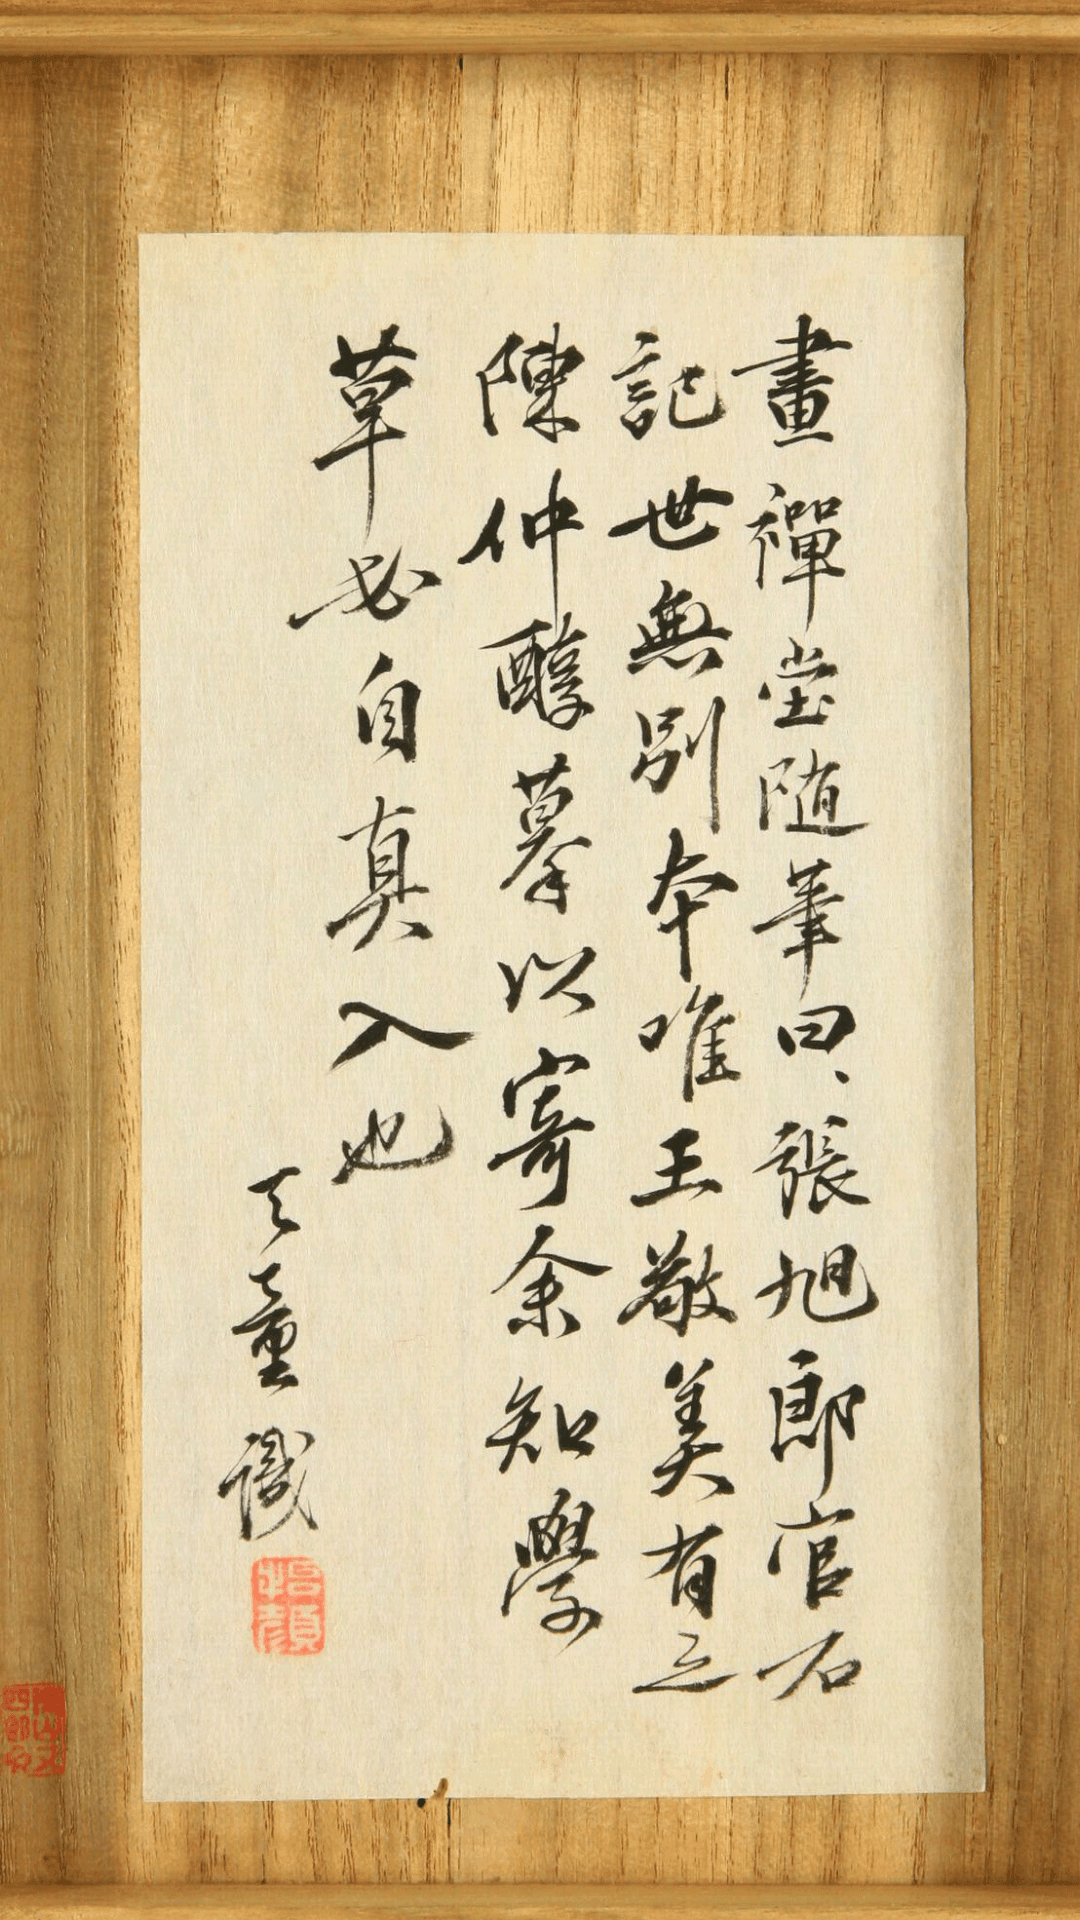 畫禪堂随筆曰、張旭郎官石
記世無別本唯王敬美有之
陳仲醇摹以寄余知學
草必自真入也
天童識